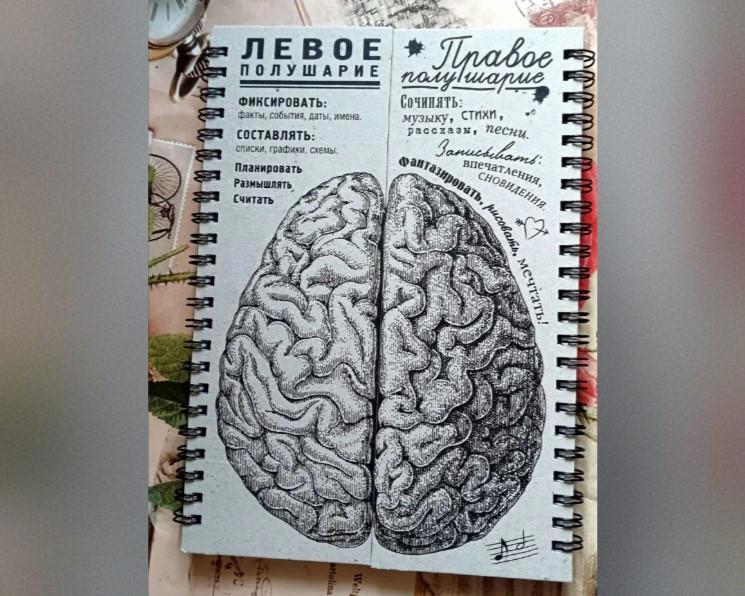 ЛЕВОЕ
ПОЛУШАРИЕ
ФИКСИРОВАТЬ:
факты, события, даты, имена.
СОСТАВЛЯТЬ:
списки, графики, схемы.
Планировать
Размышлять
Считать
Правое
полушарие
Сочинять:
музыку, стихи,
рассказы, песни.
Записывать:
впечатления,
сновидения.
Фантазировать, рисовать, мечтать!